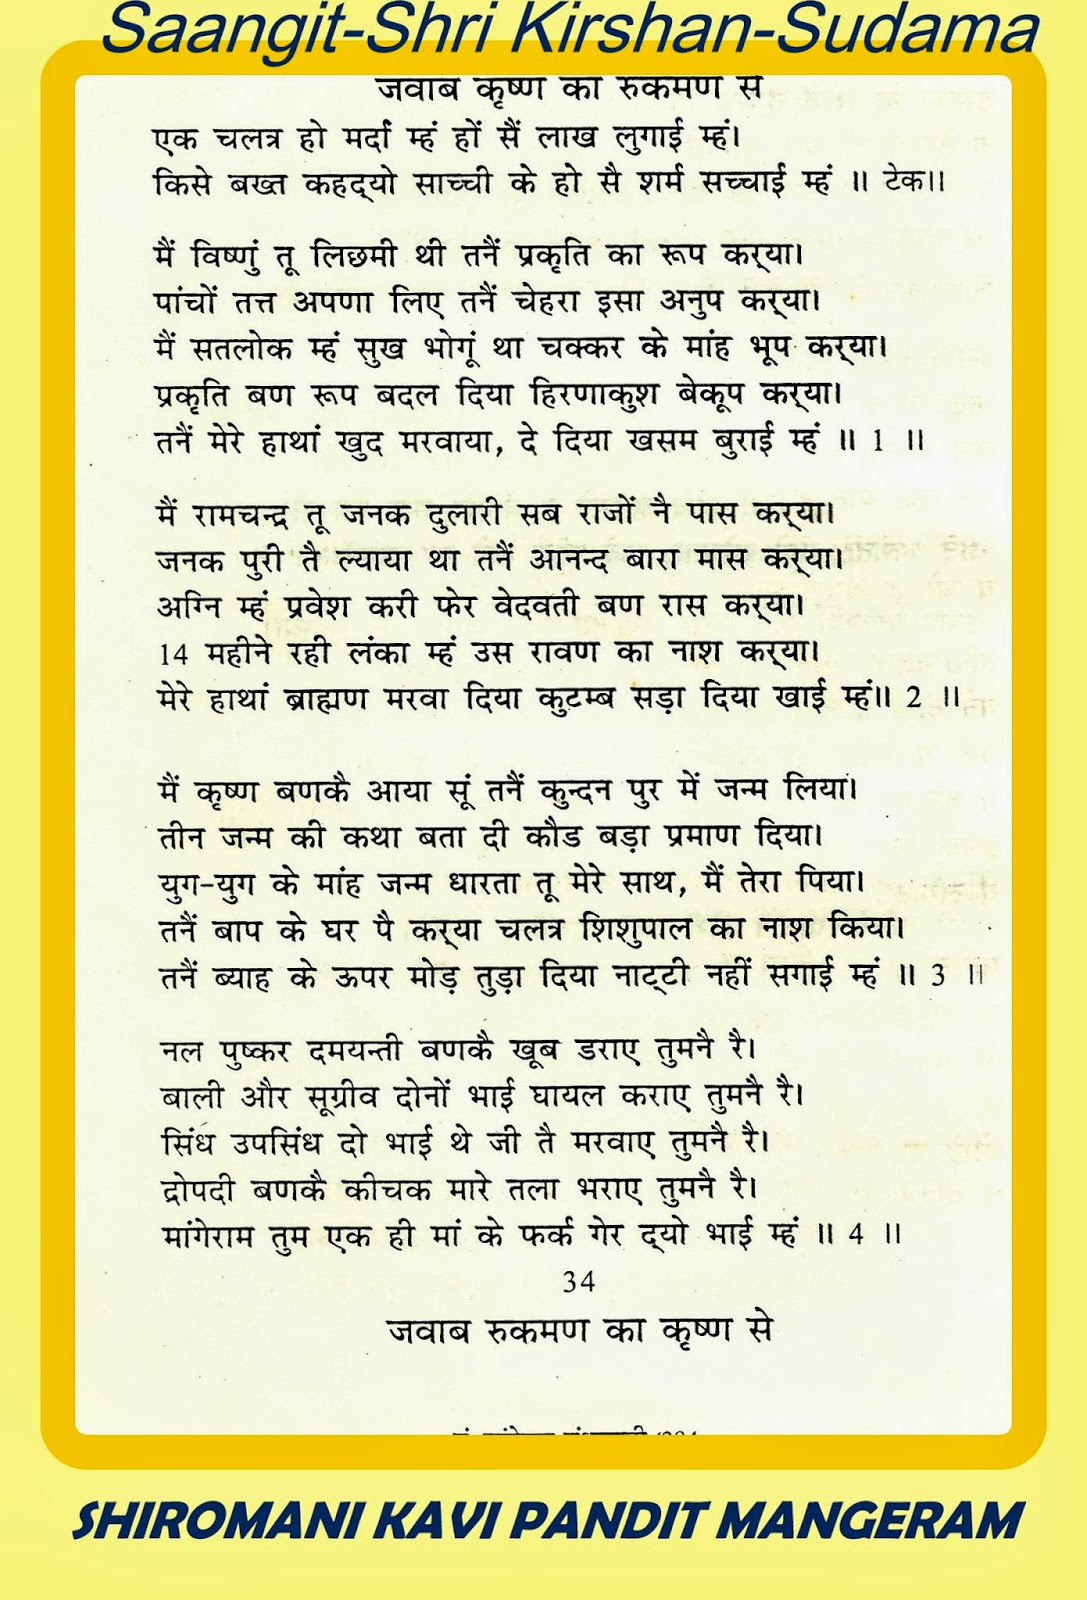 Saangit-Shri Kirshan-Sudama
जवाब कृष्ण का रुकमण से
एक चलत्र हो मर्दां म्हं हों सैं लाख लुगाई म्हं।
किसे बख्त कहद्यो साच्ची के हो सै शर्म सच्चाई म्हं ॥ टेक॥
मैं विष्णुं तू लिछमी थी तनैं प्रकृति का रूप कर्‌या।
पांचों तत्त अपणा लिए तनैं चेहरा इसा अनुप कर्‌या।
मैं सतलोक म्हं सुख भोगूं था चक्कर के मांह भूप कर्‌या।
प्रकृति बण रूप बदल दिया हिरणाकुश बेकूप कर्‌या।
तनैं मेरे हाथां खुद मरवाया, दे दिया खसम बुराई म्हं ॥ 1 ॥
मैं रामचन्द्र तू जनक दुलारी सब राजों नै पास कर्‌या।
जनक पुरी तै ल्याया था तनैं आनन्द बारा मास कर्‌या।
अग्नि म्हं प्रवेश करी फेर वेदवती बण रास कर्‌या।
14 महीने रही लंका म्हं उस रावण का नाश कर्‌या।
मेरे हाथां ब्राह्मण मरवा दिया कुटम्ब सड़ा दिया खाई म्हं॥ 2 ॥
मैं कृष्ण बणकै आया सूं तनैं कुन्दन पुर में जन्म लिया।
तीन जन्म की कथा बता दी कौड बड़ा प्रमाण दिया।
युग-युग के मांह जन्म धारता तू मेरे साथ, मैं तेरा पिया।
तनैं बाप के घर पै कर्‌या चलत्र शिशुपाल का नाश किया।
तनैं ब्याह के ऊपर मोड़ तुड़ा दिया नाट्टी नहीं सगाई म्हं ॥ 3 ॥
नल पुष्कर दमयन्ती बणकै खूब डराए तुमनै रै।
बाली और सूग्रीव दोनों भाई घायल कराए तुमनै रै।
सिंध उपसिंध दो भाई थे जी तै मरवाए तुमनै रै।
द्रोपदी बणकै कीचक मारे तला भराए तुमनै रै।
मांगेराम तुम एक ही मां के फर्क गेर द्यो भाई म्हं ॥ 4 ॥
34
जवाब रुकमण का कृष्ण से
SHIROMANI KAVI PANDIT MANGERAM